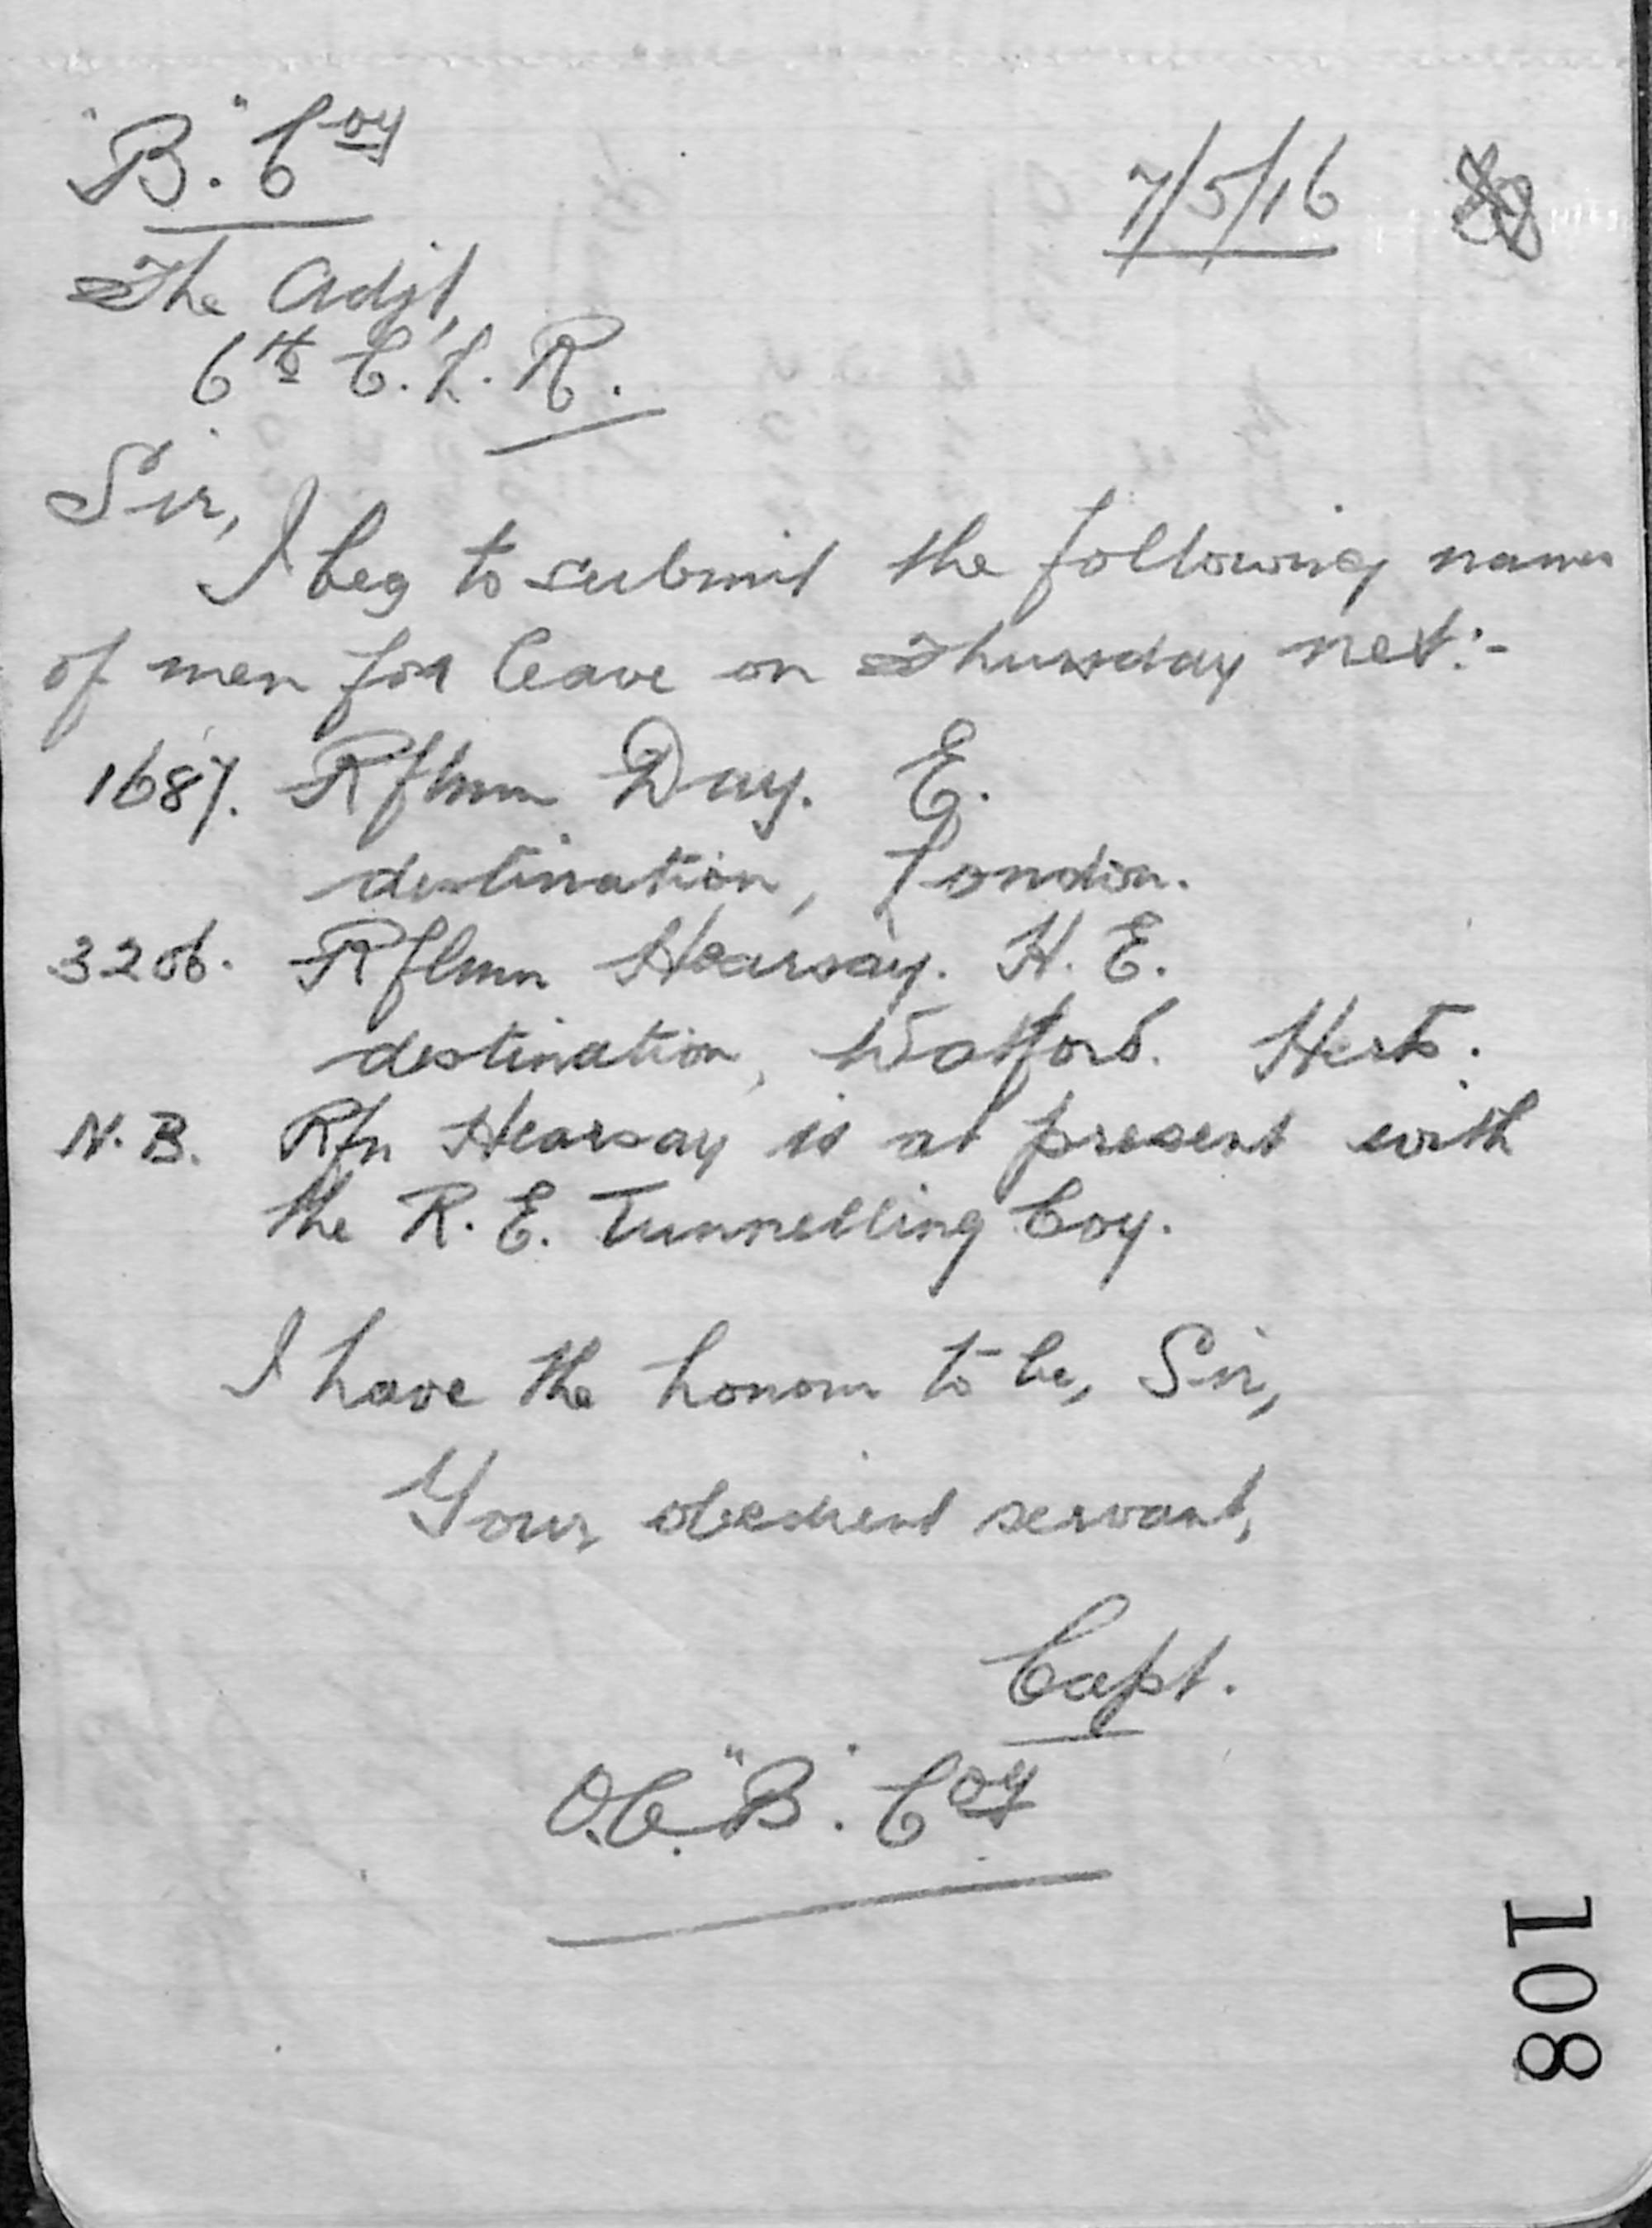 "B". Coy
7/5/16
The Adjt,
6th C.L.R.
Sir,
I beg to submit the following names
of men for leave on Thursday next:-
1687. Rflmn Day. E.
destination, London.
3206. Rflmn Hearsay. H. E.
destination, Watford. Herts.
N.B. Rfn Hearsay is at present with
the R.E. Tunnelling Coy.
I have the honour to be, Sir,
Your obedient servant,
Capt.
O.C. "B". Coy
108